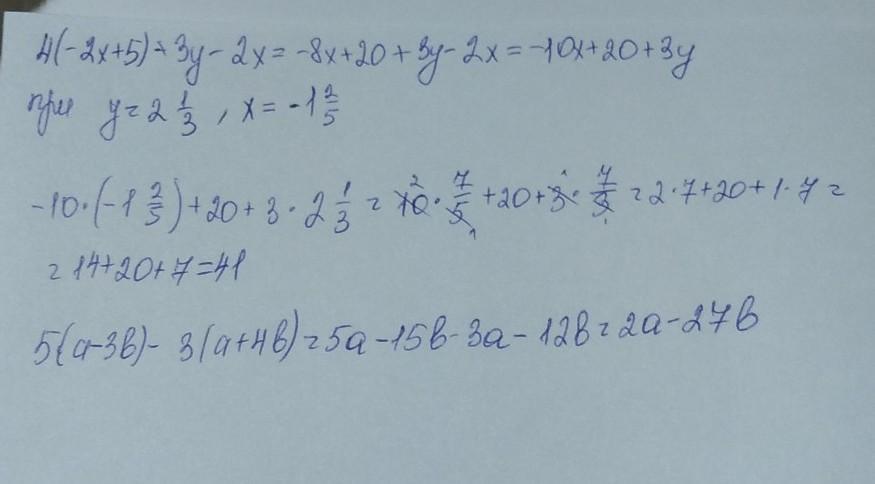 4(-2x+5)+3y-2x=-8x+20+3y-2x=-10x+20+3y
при y=2 1/3, x=-1 2/5
-10·(-1 2/5)+20+3·2 1/3=10·7/5+20+3·7/3=2·7+20+1·7=
=14+20+7=41
5(a-3b)-3(a+4b)=5a-15b-3a-12b=2a-27b